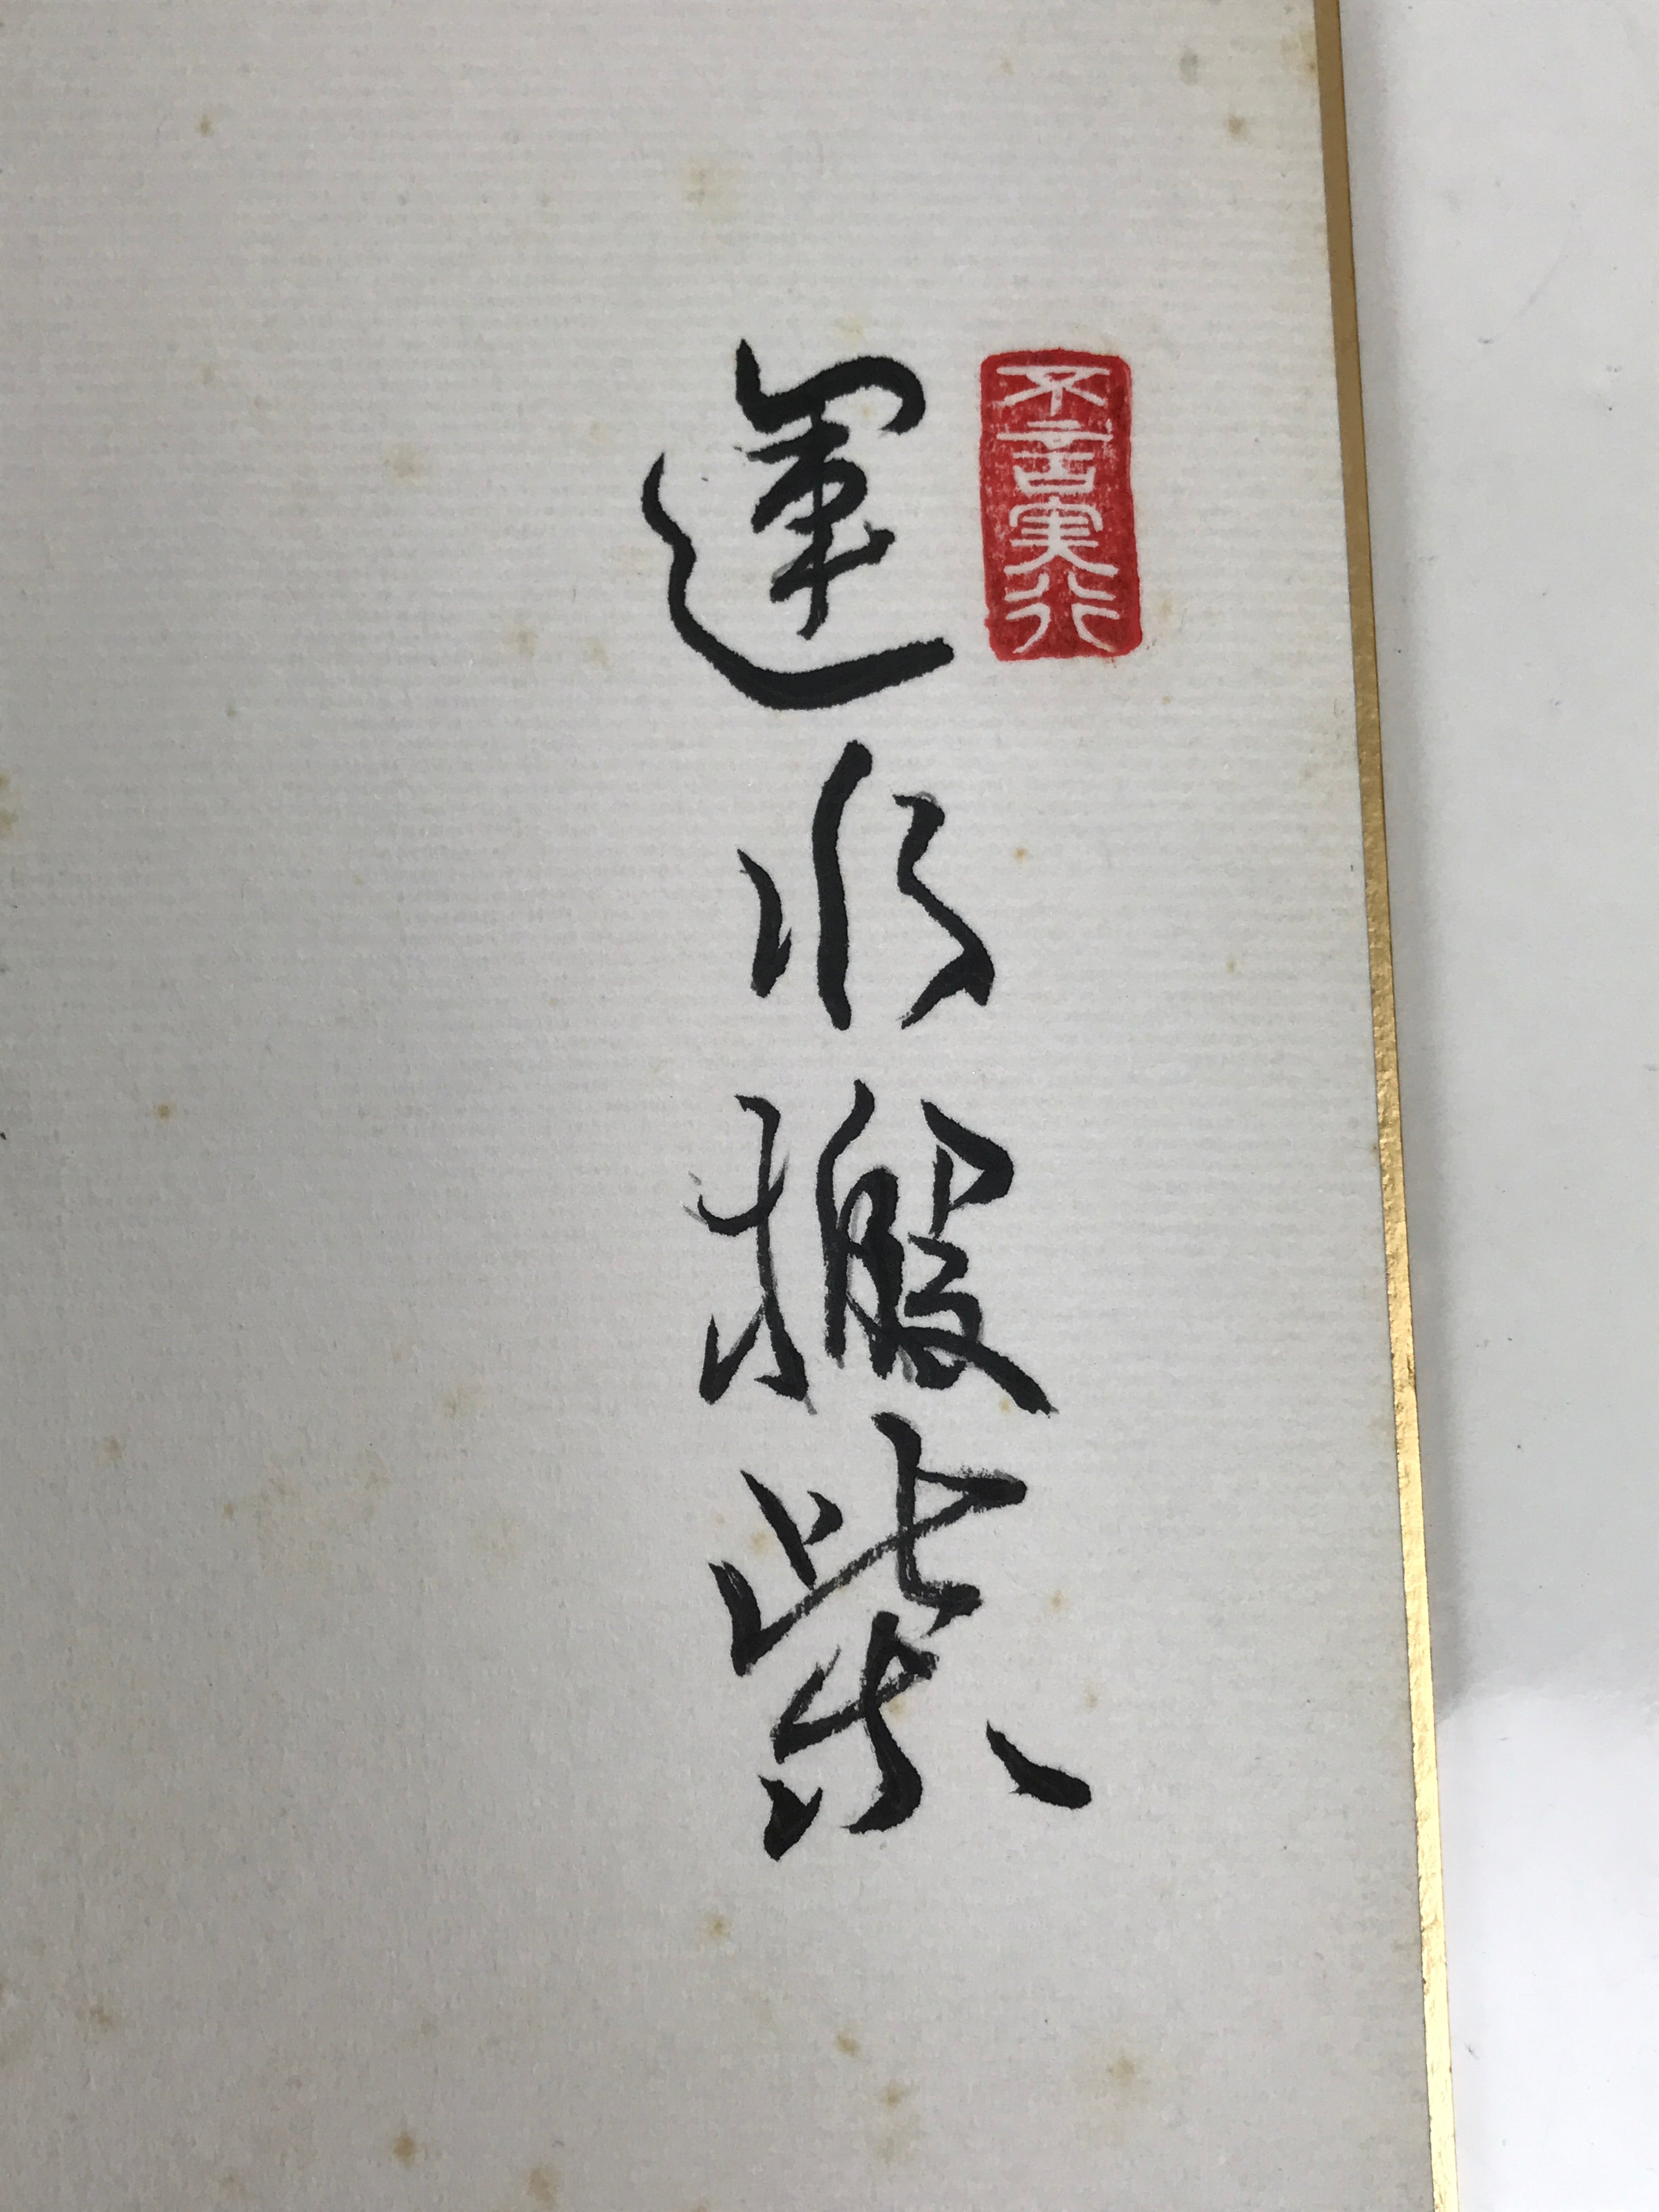 不言実行
運水搬柴